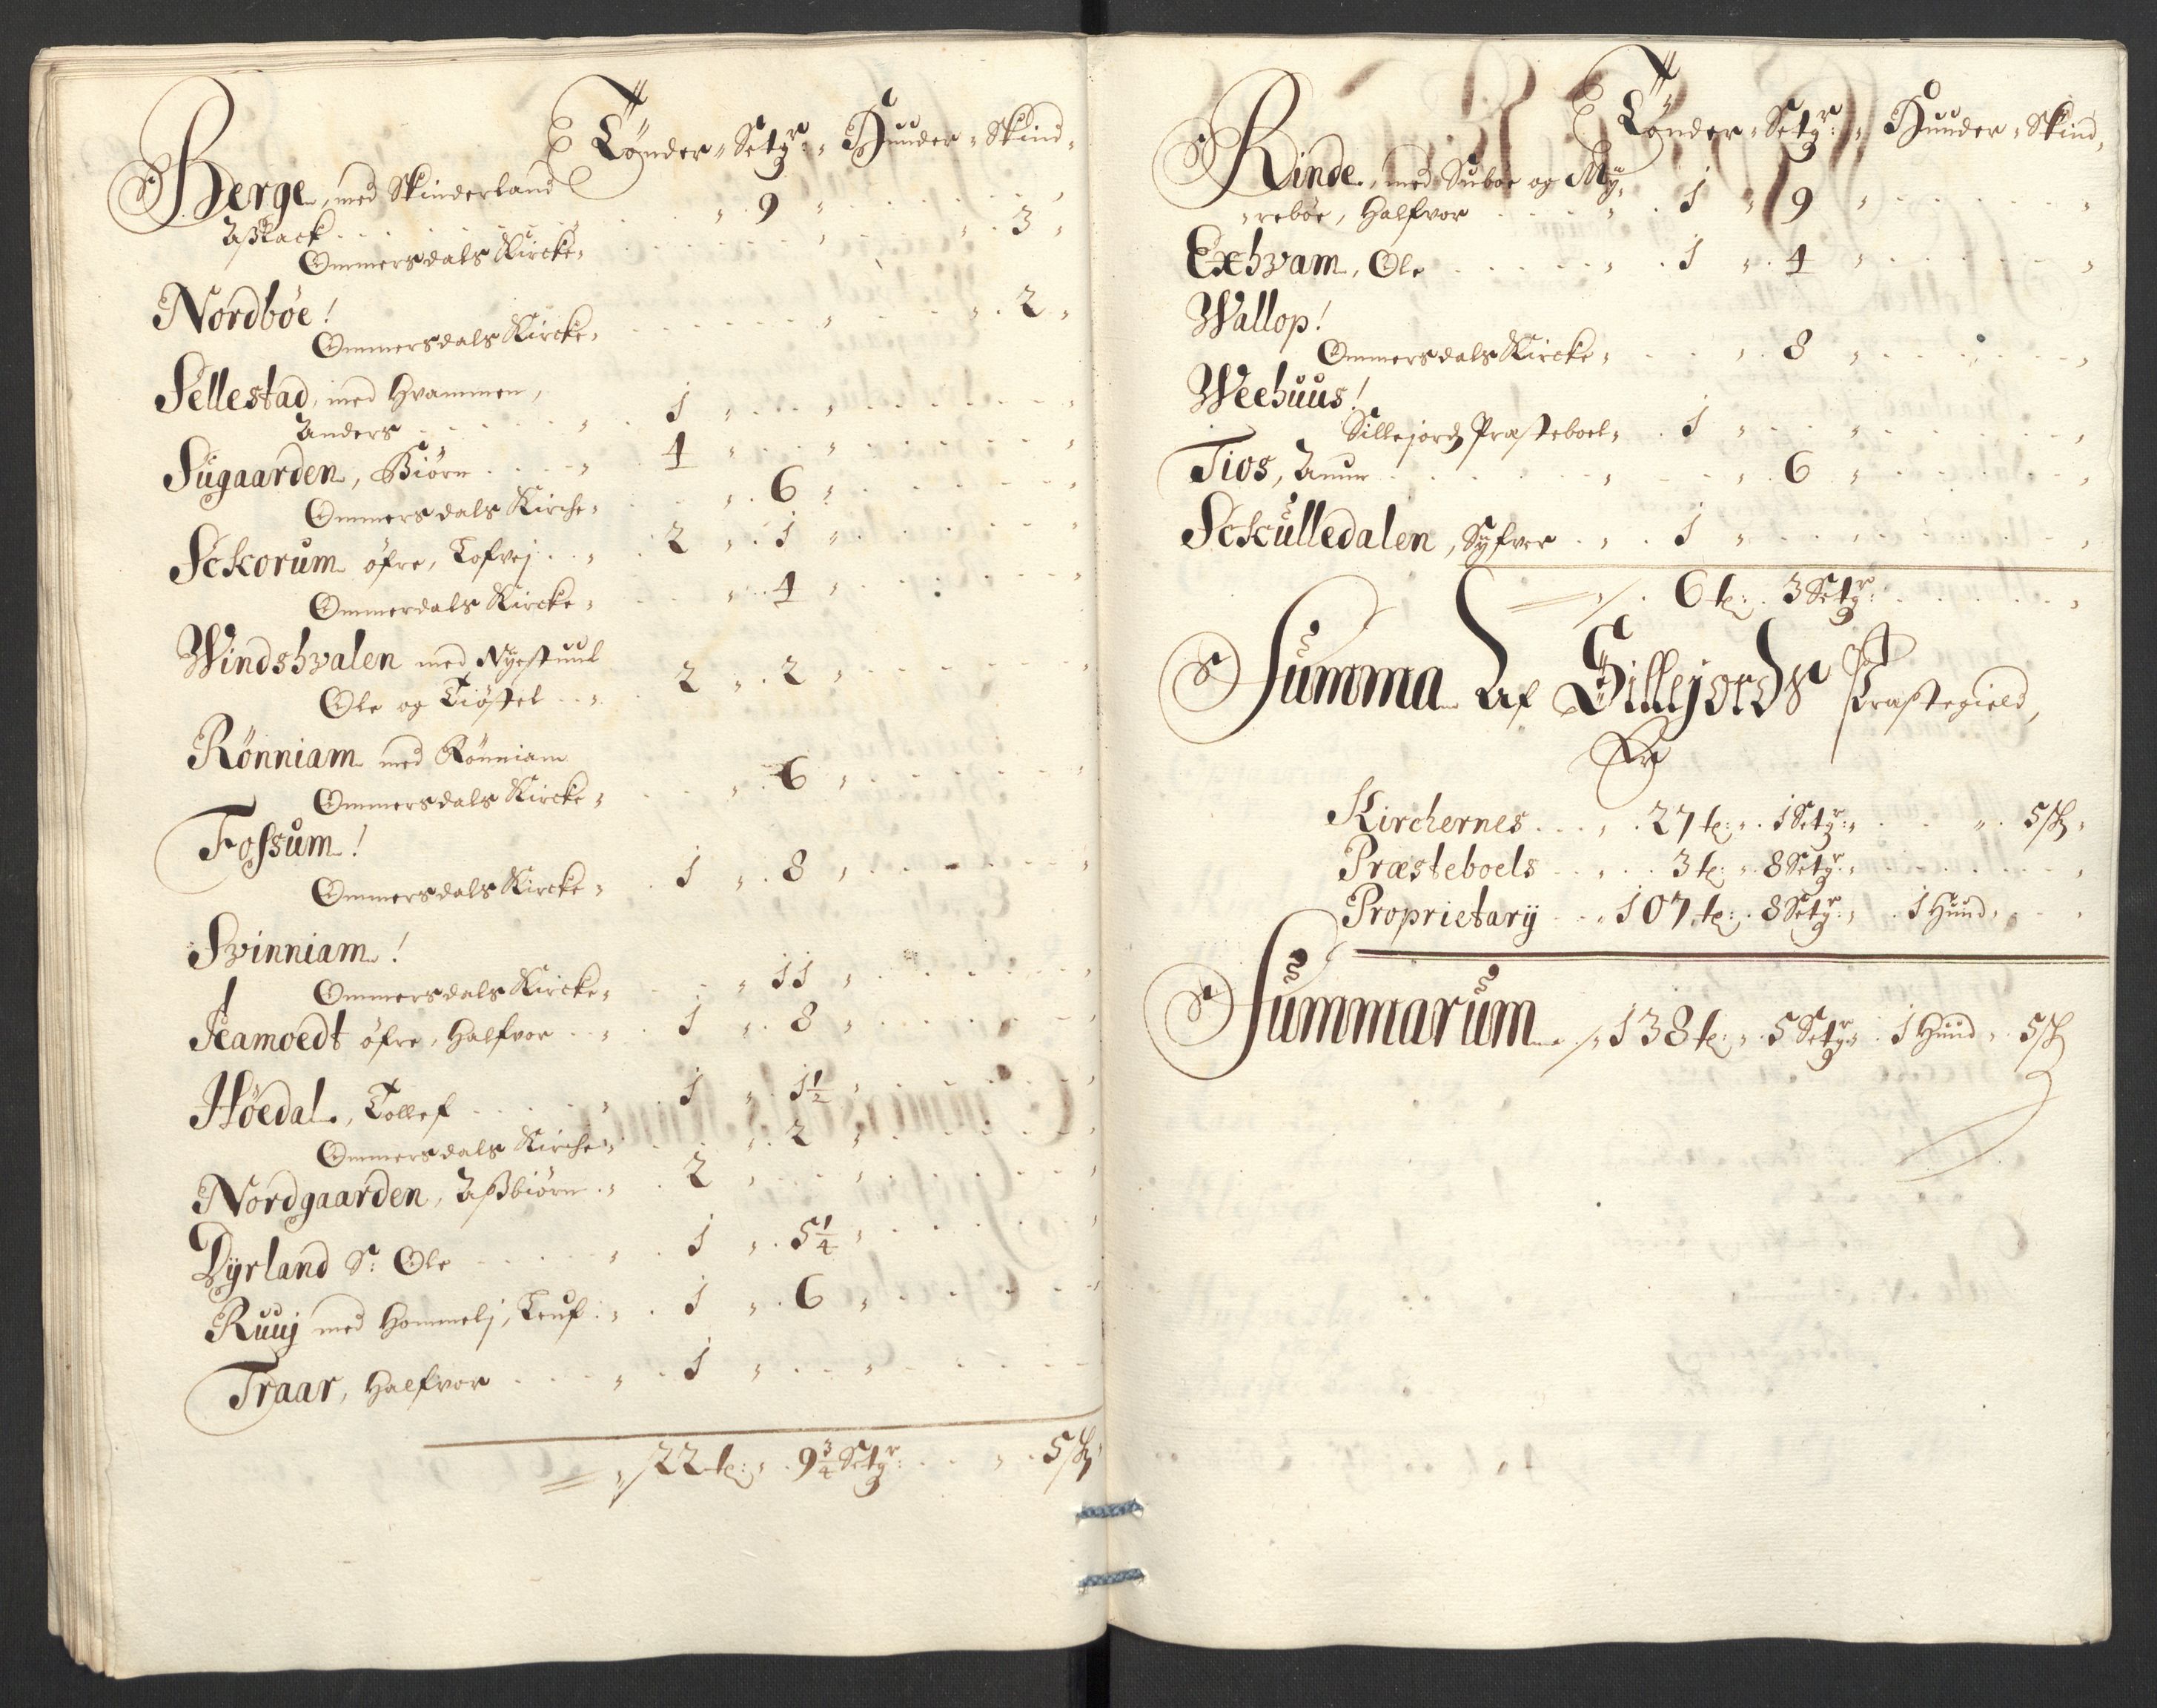 Tönder " Setgr: " Huuder " Skind "
Berge, med Skinderland
Aßlack . . . " 9 "
Ommersdals Kircke " . . . 3 "
Nordböe!
Ommersdals Kircke " . . . 2 "
Sellestad, med Hvammen,
Anders . . . 1 "
Sugaarden, Biörn . . . 4 "
Ommersdals Kirche " . . 6 "
Sckorum öfre, Tofvej . . 2 " 1 "
Ommerdals Kircke " . . 4 "
Windshvalen med Nyestuul
Ole og Kiöstel . . 2 " 2 "
Rönniam med Rönniam
Ommersdals Kircke " . . 6 "
Fossum!
Ommersdals Kircke " . 1 " 8 "
Svinniam!
Ommersdals Kircke " . . 11 "
Aamoedt öfre, Halfvor . . 1 " 8 "
Höedal, Tollef . . . 1 " 1½ "
Ommersdals Kirche " . . 2 "
Nordgaarden, Aßbiörn . " 2 "
Dÿrland S: Ole . . . 1 " 5¼ "
Ruuj med Hommelj, Teuf: " . 1 " 6 "
Traar, Halfvor . . . 1 "
22 t: " 9¾ Setgr: . . 5 sk
Tönder " Setgr: " Huuder " Skind "
Rinde, med Suboe og Mÿ-
reböe, Halfvor . . . 1 " 9 "
Exhvam, Ole . . . 1 " 4 "
Wallop!
Ommersdals Kircke " . . 8 "
Weehuus!
Sillejords Præsteboel " . 1 "
Tios, Anun . . . " 6 "
Sckulledalen, Syfver . " . 1 "
6 t: 3 Setgr:
Summa Af Sillejords Præstegield,
Er
Kirchernes . . . 27 t: " 1 Setgr: " . . 5 sk "
Præsteboels . . . 3 t: " 8 Setgr: "
Proprietarÿ . . . 107 t: 8 Setgr: " . 1 Huud "
Summarum . . 138 t: " 5 Setgr: 1 Huud " 5 sk